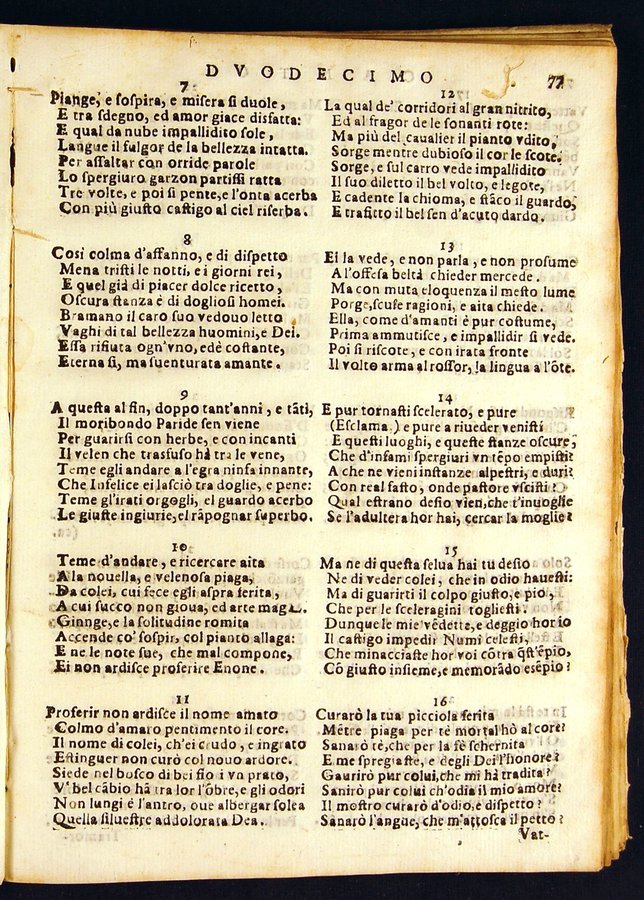 DVODECIMO 77
7
Piange, e sospira, e misera si duole,
E tra sdegno, ed amor giace disfatta:
E qual da nube impallidito sole,
Langue il fulgor de la bellezza intatta.
Per assaltar con orride parole
Lo spergiuro garzon partissi ratta
Tre volte, e poi si pente, e l'onta acerba
Con più giusto castigo al ciel riserba.
8
Cosi colma d'affanno, e di dispetto
Mena tristi le notti, e i giorni rei,
E quel già di piacer dolce ricetto,
Oscura stanza è di dogliosi homei.
Bramano il caro suo vedouo letto
Vaghi di tal bellezza huomini, e Dei.
Essa rifiuta ogn'vno, ed è costante,
Eterna si, ma suenturata amante.
9
A questa al fin, doppo tant'anni, e tāti,
Il moribondo Paride sen viene
Per guarirsi con herbe, e con incanti
Il velen che trasfuso hà tra le vene,
Teme egli andare a l'egra ninfa innante,
Che Infelice ei lasciò tra doglie, e pene:
Teme gl'irati orgogli, el guardo acerbo
Le giuste ingiurie, el rāpognar superbo.
10
Teme d'andare, e ricercare aita
A la nouella, e velenosa piaga,
Da colei, cui fece egli aspra ferita,
A cui succo non gioua, ed arte maga.
Giunge, e la solitudine romita
Accende co' sospir, col pianto allaga:
E ne le note sue, che mal compone,
Ei non ardisce proferire Enone.
11
Proferir non ardisce il nome amato
Colmo d'amaro pentimento il core.
Il nome di colei, ch'ei crudo, e ingrato
Estinguer non curò col nouo ardore.
Siede nel bosco di bei fio i vn prato,
V' bel cābio hā tra lor l'ōbre, e gli odori
Non lungi è l'antro, oue albergar solea
Quella siluestre addolorata Dea.
12
La qual de' corridori al gran nitrito,
Ed al fragor de le sonanti rote:
Ma più del caualier il pianto vdito,
Sorge mentre dubioso il cor le scote.
Sorge, e sul carro vede impallidito
Il suo diletto il bel volto, e le gote,
E cadente la chioma, e stāco il guardo,
E trafitto il bel sen d'acuto dardo.
13
Ei la vede, e non parla, e non prosume
A l'offesa beltà chieder mercede.
Ma con muta eloquenza il mesto lume
Porge, scuse ragioni, e aita chiede.
Ella, come d'amanti è pur costume,
Prima ammutisce, e impallidir si vede.
Poi si riscote, e con irata fronte
Il volto arma al rossor, la lingua a l'ōte.
14
E pur tornasti scelerato, e pure
(Esclama) e pure a riueder venisti
E questi luoghi, e queste stanze oscure,
Che d'infami spergiuri vn tēpo empisti?
A che ne vieni instanze alpestri, e duri?
Con real fasto, onde pastore vscisti?
Qual estrano desio vien, che t'inuoglie
Se l'adultera hor hai, cercar la moglie?
15
Ma ne di questa selua hai tu desio
Ne di veder colei, che in odio hauesti:
Ma di guarirti il colpo giusto, e pio,
Che per le sceleragini togliesti.
Dunque le mie vēdette, e deggio hor io
Il castigo impedir Numi celesti,
Che minacciaste hor voi cōtra q̄st'ēpio,
Cō giusto insieme, e memorādo esēpio?
16
Curarò la tua picciola ferita
Mētre piaga per tè mortal hò al core?
Sanarò tè, che per la fè schernita
E me spregiaste, e degli Dei l'honore?
Gaurirò pur colui, che mi hà tradita?
Sanirò pur colui ch'odia il mio amore?
Il mostro curarò d'odio, e dispetto?
Sanarò l'angue, che m'attosca il petto?
Vat-